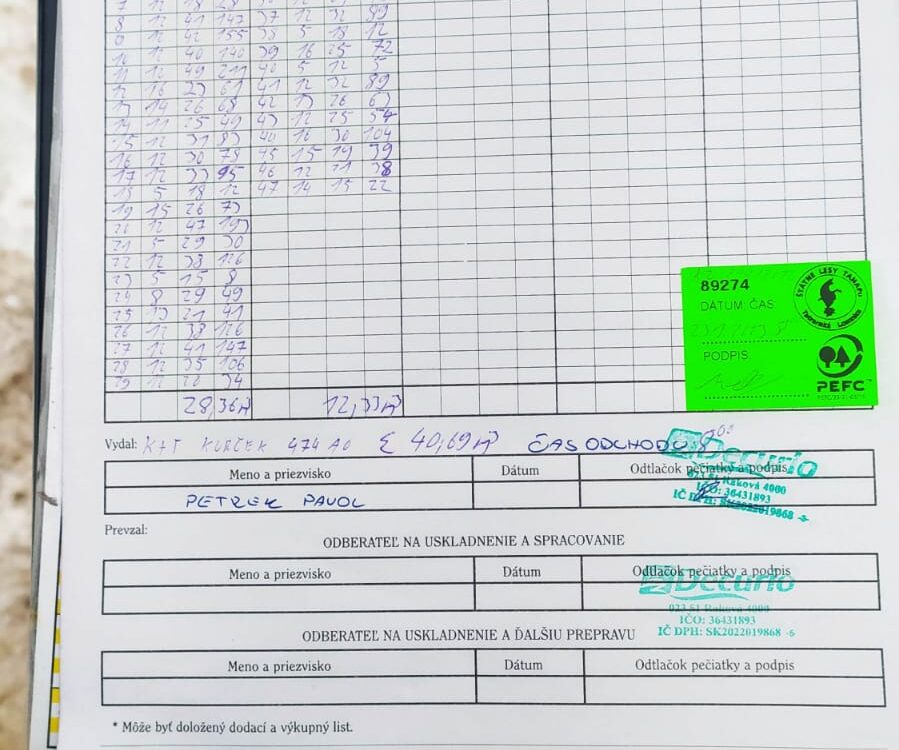 8 12 41 147 37 12 32 89
9 12 42 155 38 5 18 12
10 12 40 140 39 16 25 72
11 12 49 211 40 5 12 5
12 16 23 61 41 12 32 89
13 14 26 68 42 13 26 63
14 11 25 49 43 12 25 54
15 12 31 83 16 30 104
16 12 30 78 45 15 19 39
17 12 33 95 46 12 21 38
18 5 18 12 47 14 15 22
19 15 26 73
20 12 47 193
21 5 29 30
22 12 38 126
23 5 15 8
24 8 29 49
25 13 21 41
26 12 38 126
27 12 41 147
28 12 35 106
29 12 20 34
89274
ŠTÁTNE LESY TANAPU
Tatranská Lomnica
DÁTUM, ČAS
PODPIS
PEFC™
28,36 12,33
Vydal: KURČEK 474 AO Σ 40,69 ČAS ODCHODU
Meno a priezvisko Dátum Odtlačok pečiatky a podpis
PETREK PAVOL
Decurio
023 51 Raková 4000
IČO: 36431893
IČ DPH: SK2022019868 -6
Prevzal:
ODBERATEĽ NA USKLADNENIE A SPRACOVANIE
Meno a priezvisko Dátum Odtlačok pečiatky a podpis
Decurio
023 51 Raková 4000
IČO: 36431893
IČ DPH: SK2022019868 -6
ODBERATEĽ NA USKLADNENIE A ĎALŠIU PREPRAVU
Meno a priezvisko Dátum Odtlačok pečiatky a podpis
* Môže byť doložený dodací a výkupný list.